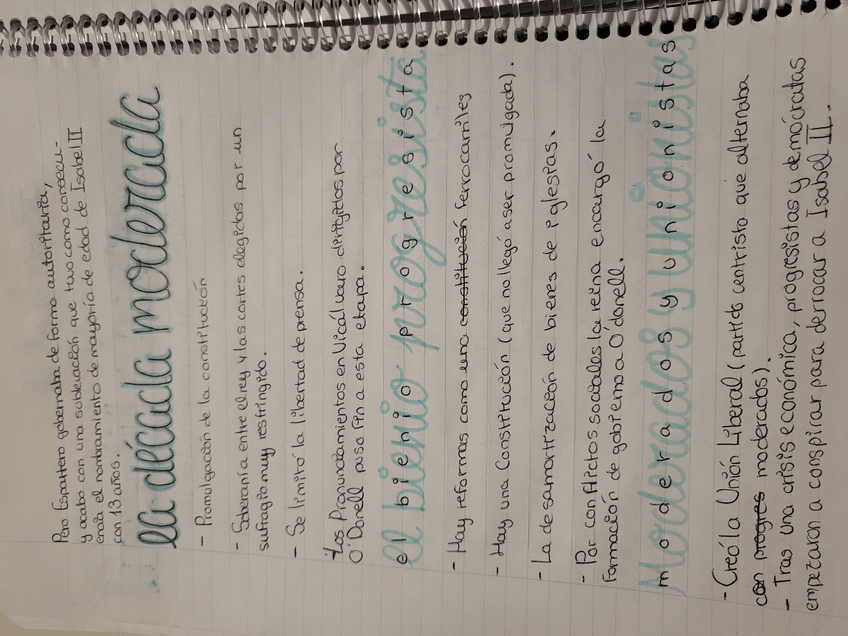 Pero Espartero gobernaba de forma autoritaria,
y acabo con una sublevación que tuvo como consecu-
encia el nombramiento de mayoría de edad de Isabel II
con 13 años.
la década moderada
- Promulgación de la constitución
- Soberanía entre el rey y las cortes elegidas por un
sufragio muy restringido.
- Se limitó la libertad de prensa.
Los Pronunciamientos en Vicálvaro dirigidos por
O'Donell puso fin a esta etapa.
el bienio progresista
el bienio progresista
- Hay reformas como una constitución ferrocarriles
- Hay una Constitución (que no llegó a ser promulgada).
- La desamortización de bienes de iglesias.
- Por conflictos sociales la reina encargó la
formación de gobierno a O'donell.
Moderados y unionistas
moderados y unionistas
- Creó la Unión Liberal (partido centrista que alternaba
con progres moderados).
- Tras una crisis económica, progresistas y demócratas
empezaron a conspirar para derrocar a Isabel II.